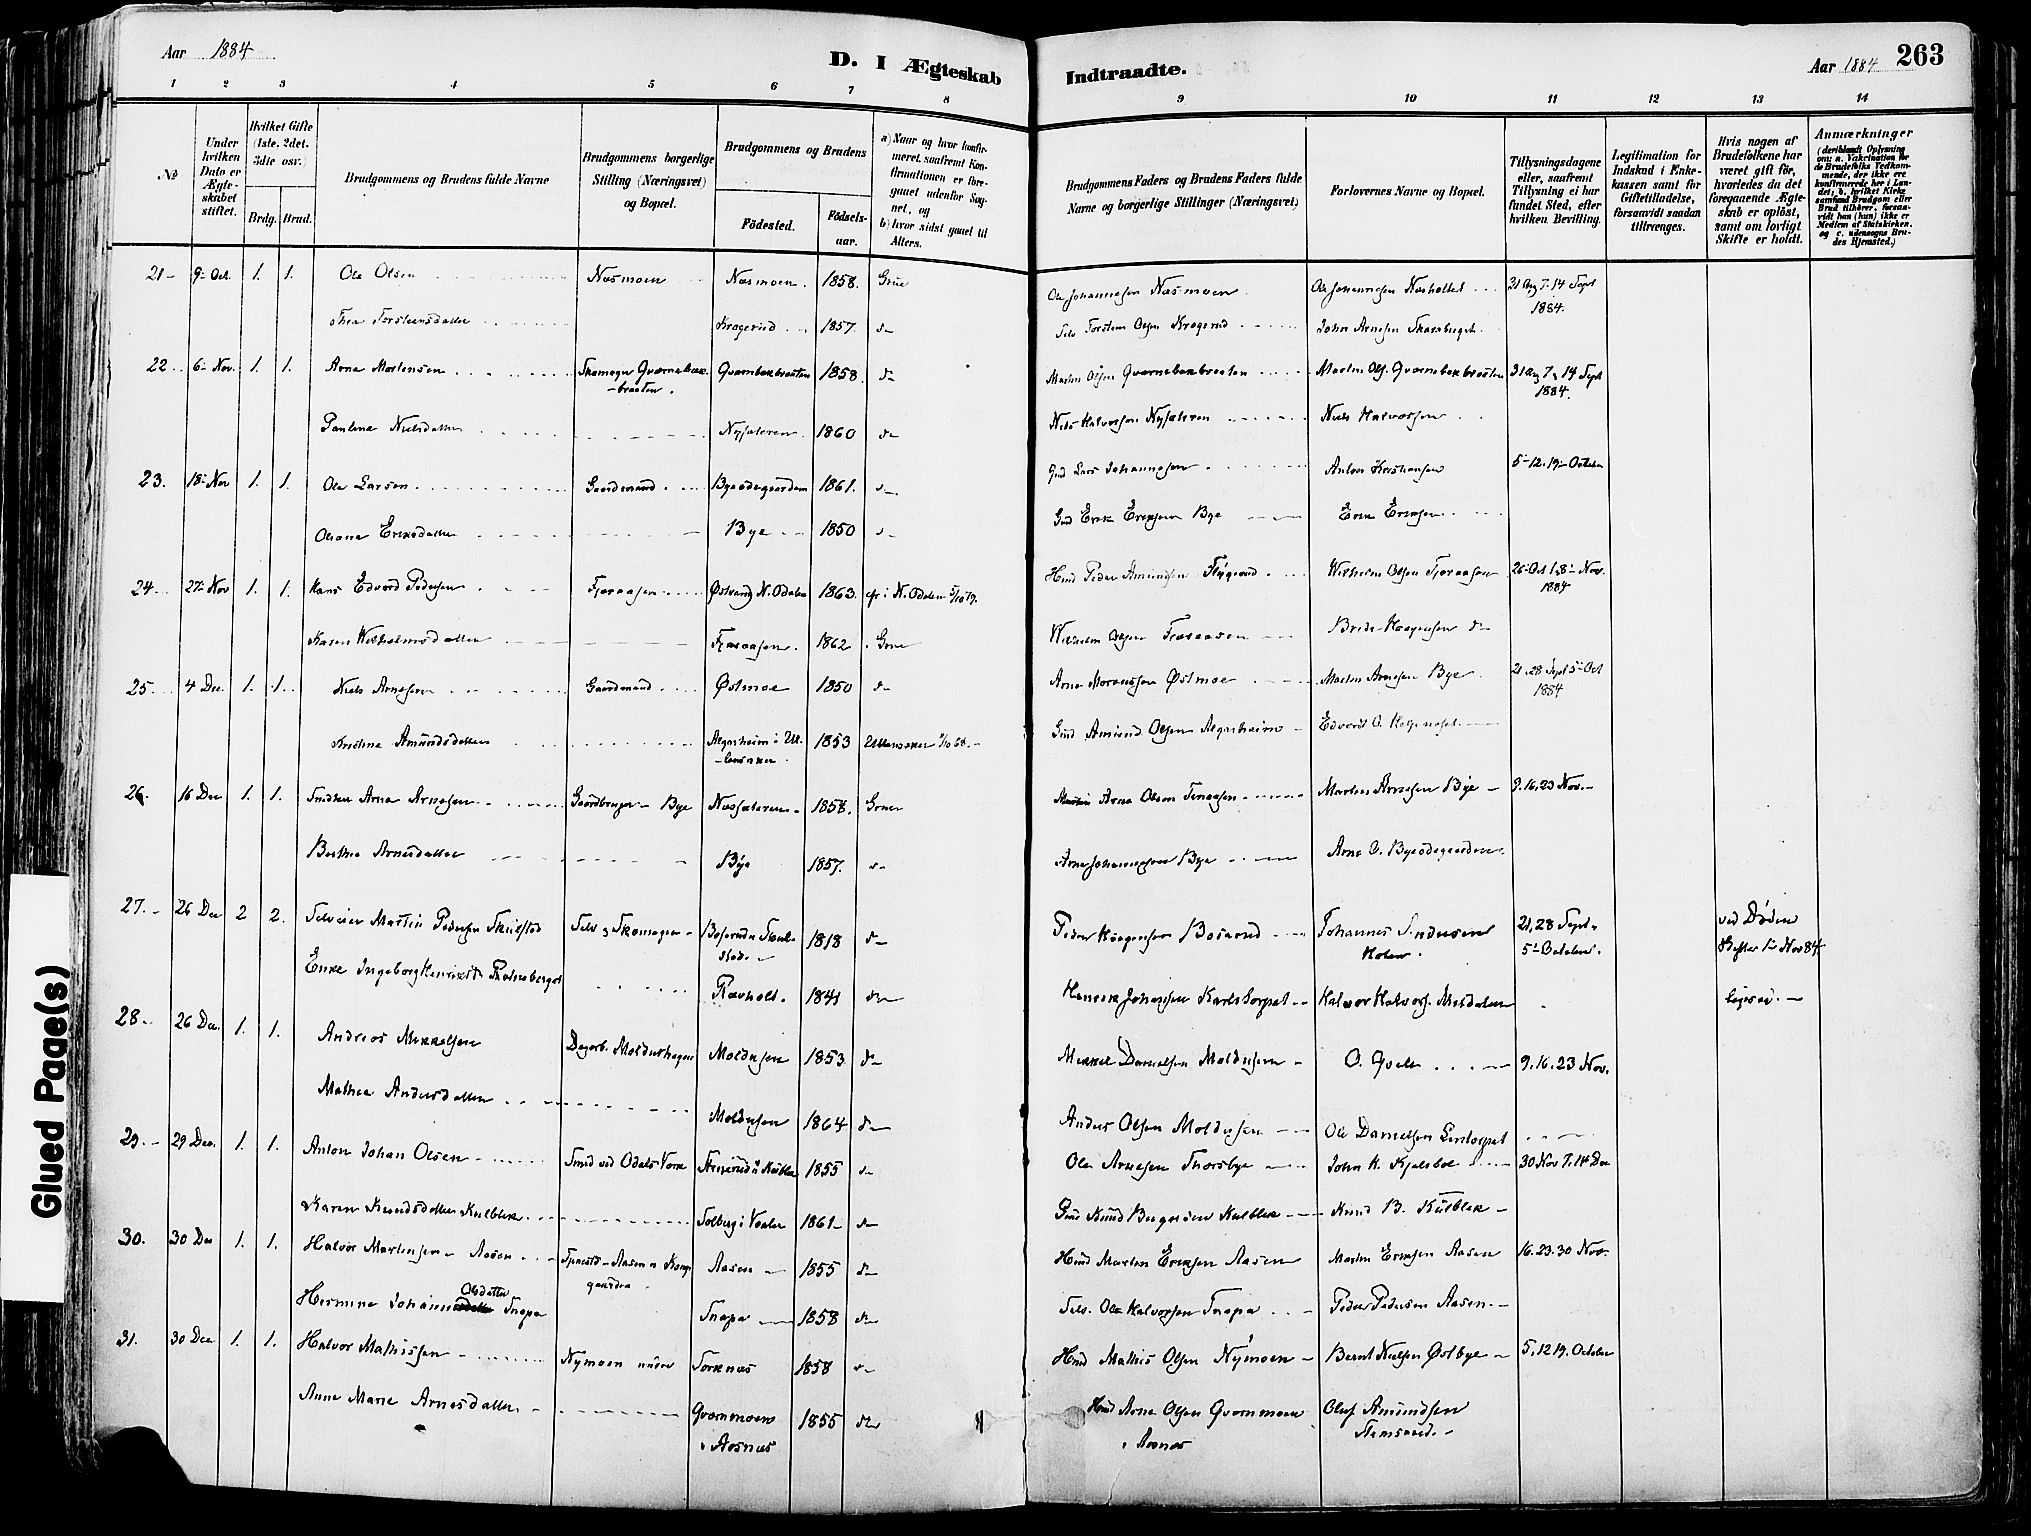 Aar 1884
D. I Ægteskab Indtraadte.
Aar 1884 263
1 2 3 4 5 6 7 8 9 10 11 12 13 14
No
Under hvilken Dato er Ægteskabet stiftet.
Hvilket Gifte (1ste, 2det, 3die osv.)
Brdg. Brud.
Brudgommens og Brudens fulde Navne
Brudgommens borgerlige Stilling (Næringsvei) og Bopæl.
Brudgommens og Brudens
Födested.
Födsels-aar.
a) Naar og hvor konfirmeret, saafremt Konfirmationen er foregaaet udenfor Sognet, og
b) hvor sidst gaaet til Alters.
Brudgommens Faders og Brudens Faders fulde Navne og borgerlige Stillinger (Næringsvei)
Forlovernes Navne og Bopæl.
Tillysningsdagene eller, saafremt Tillysning ei har fundet Sted, efter hvilken Bevilling.
Legitimation for Indskud i Enkekassen samt for Giftetilladelse, forsaavidt saadan tiltrænges.
Hvis nogen af Brudefolkene har været gift før, hvorledes da det foregaaende Ægteskab er oplöst, samt om lovligt Skifte er holdt.
Anmærkninger
(deriblandt Oplysning om: a. Vakcination for de Brudefolks Vedkommende, der ikke ere konfirmerede her i Landet; b. hvilket Kirkesamfund Brudgom eller Brud tilhører, forsaavidt han (hun) ikke er Medlem af Statskirken, og c. udensogns Brudes Hjemsted.)
21 9 Oct. 1. 1. Ole Olsen Næsmoen Næsmoen 1858. Grue Ole Johannesen Næsmoen Ole Johannesen 31 Aug 7. 14 Sept 1884.
Thea Torstensdatter Krogerud 1857. do Selv Torsten Olsen Krogerud John Arnesen Skarsberget
22 6 Nov. 1. 1. Arne Mortensen Skomager Qværnebækbraaten Qværnbækbraaten 1858. do Morten Olsen Qværnebekbraaten Morten Ols. Qværnebekbraaten 31 Aug 7 & 14 Sept 1884.
Pauline Nielsdatter Nysæteren 1860 do Niels Halvorsen Nysæteren Niels Halvorsen
23. 18 Nov 1. 1. Ole Larsen Gaardmand Byeødegaarden 1861. do Gmd Lars Johannesen Anton Kristiansen 5 12. 19 October
Oleane Eriksdatter Bye 1850 do Gmd Erik Eriksen Bye Erik Eriksen
24. 27 Nov 1. 1. Hans Edvard Pedersen Fjæraasen N. Odalen 1863. N. Odalen Hmd Peder Amundsen Wilhelm Olsen Fjæraasen 26 Oct 1, 8 Nov. 1884
Karen Wilhelmsdatter Fjæraasen. 1862 Grue Wilhelm Olsen Fjæraasen do
25. 4 Dec. 1. 1. Niels Arnesen Gaardmand Østmoe 1850 do Arne Østmoe Morten Arnesen Bye 21. 28 Sept 5 Oct 1884
Kristine Amundsdatter Algarheim i Ullensaker 1853 Ullensaker Gmd Amund Olsen Algarheim Edvard O.
26. 16 Dec 1. 1. Arne Arnesen Gaardbruger Bye Næssæteren 1858. Grue Arne Olsen Morten Arnesen Bye 9. 16. 23 Nov.
Berthe Arnesdatter Bye 1857. do Arne Johannesen Bye Arne O. Byeødegaarden
27. 26 Dec 2 2. Selveier Martin Pedersen Skulstad Selv & Skomager 1818 do Peder Haagensen Boserud Johannes Andersen Holen. 21, 28 Sept. 5 October. ved Døden Skifter 1 Nov 84
Enke Ingeborg Henriksd. Ravholt. 1841 do Henrik Johansen Karlstorpet Halvor Halvors. Meldalen ligesaa.
28. 26 Dec. 1. 1. Andreas Mikkelsen Dagarb. Moldushagen Moldusen 1853 do Mikkel Danielsen Moldusen O. Qvale 9. 16. 23 Nov.
Mathea Andersdatter Moldusen 1864 do Anders Olsen Moldusen Ole Danielsen
29. 29 Dec. 1. 1. Anton Johan Olsen Smed ved Odals Værk 1855 do Ole Arnesen Thorsbye John K. Kjelsboe 30 Nov 7. 14 Dec
Karen Knudsdatter Kulblik Solberg i Vaaler 1861 do Gmd Knud Kulblik Knud B. Kulblik
30. 30 Dec 1. 1. Halvor Martensen Aasen Aasen 1855 do Hmd Marten Eriksen Aasen Marten Eriksen Aasen 16. 23. 30 Nov.
Hermine Olsdatter Snapa Snapa 1858 do Selv. Ole Halvorsen Snapa Peder Pedersen Aasen
31. 30 Dec 1. 1. Halvor Mathissen Nymoen nedre Sorknæs 1858 do Hmd Mathis Olsen Nymoen Bernt Nielsen Østbye 5, 12 19. October
Anne Marie Arnesdatter Qværnmoen i Aasnæs 1855 do Hmd Arne Olsen Qværnmoen i Aasnæs Oluf Amundsen
Glued Page(s)